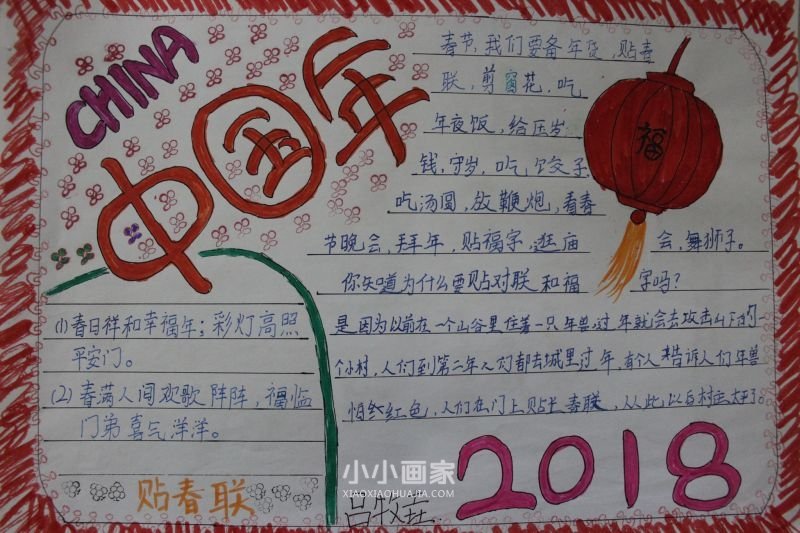 CHINA
中国年
春节,我们要备年货,贴春
联,剪窗花,吃
年夜饭,给压岁
钱,守岁,吃饺子
吃汤圆,放鞭炮,看春
节晚会,拜年,贴福字,逛庙会,舞狮子。
你知道为什么要贴对联和福字吗?
是因为以前在一个山谷里住着一只年兽过年就会去攻击山下的
个小村,人们到第二年人们都去城里过年,有个人告诉人们年兽
怕红色,人们在门上贴上春联,从此以后村
福
(1)春日祥和幸福年;彩灯高照
平安门。
(2)春满人间欢歌阵阵,福临
门弟喜气洋洋。
贴春联
2018
小小画家
XIAOXIAOHUAJIA.COM
吕牧